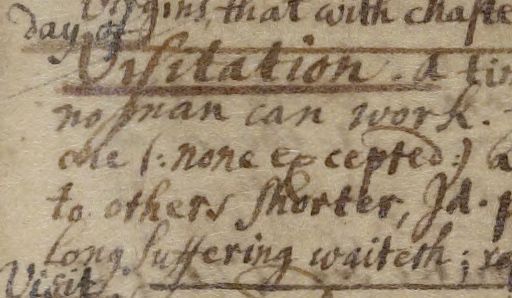 Virgins, that with chaste
day of
Visitation. A tim
no man can work.
one (: none excepted :) a
to others shorter, Id. p
long suffering waiteth; re
Visit